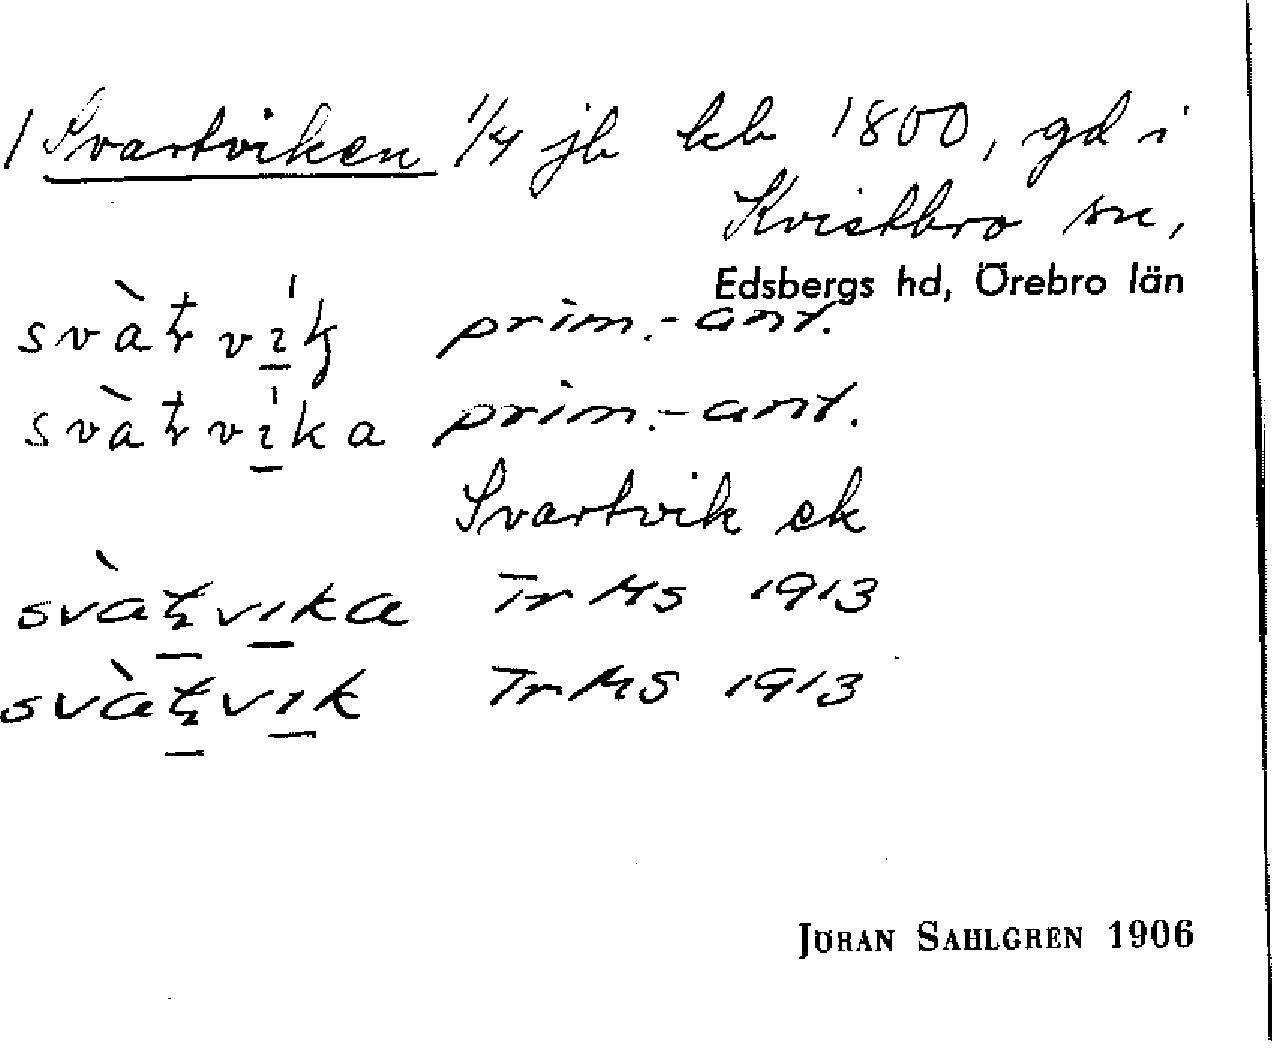 1 Svartviken 1/4 jb kb 1800, gd i
Kvistbro sn,
Edsbergs hd, Örebro län
prim.-ant.
prim.-ant.
Svartvik ek
TrMS 1913
TrMS 1913
JÖRAN SAHLGREN 1906